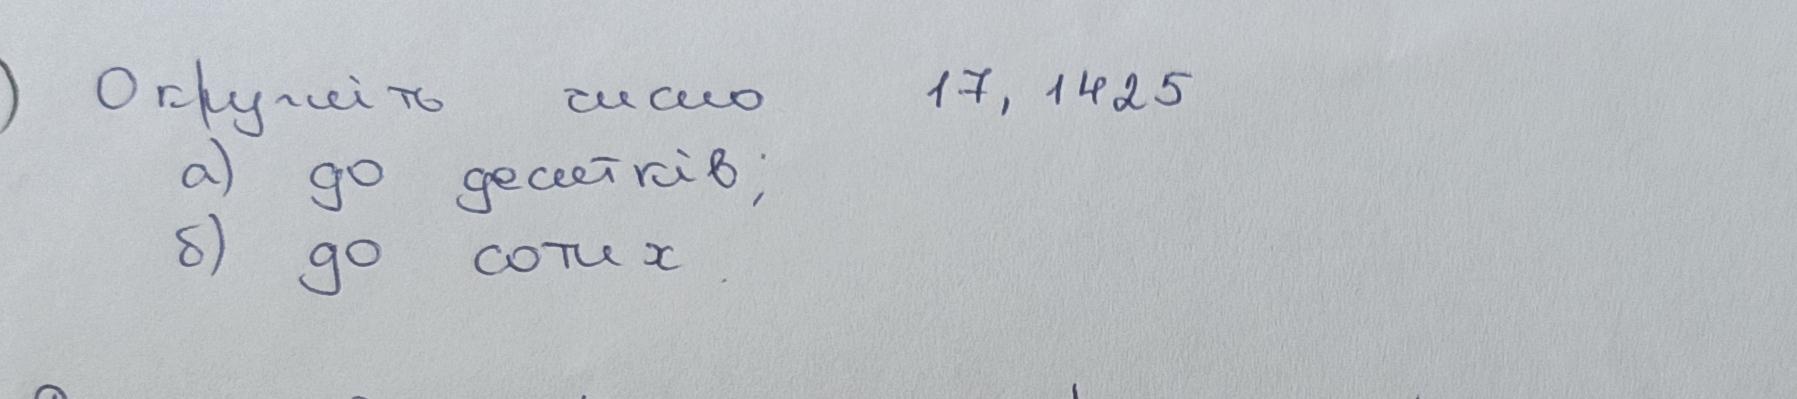 ) Округліть число 17,1425
а) до десятків;
б) до сотих.